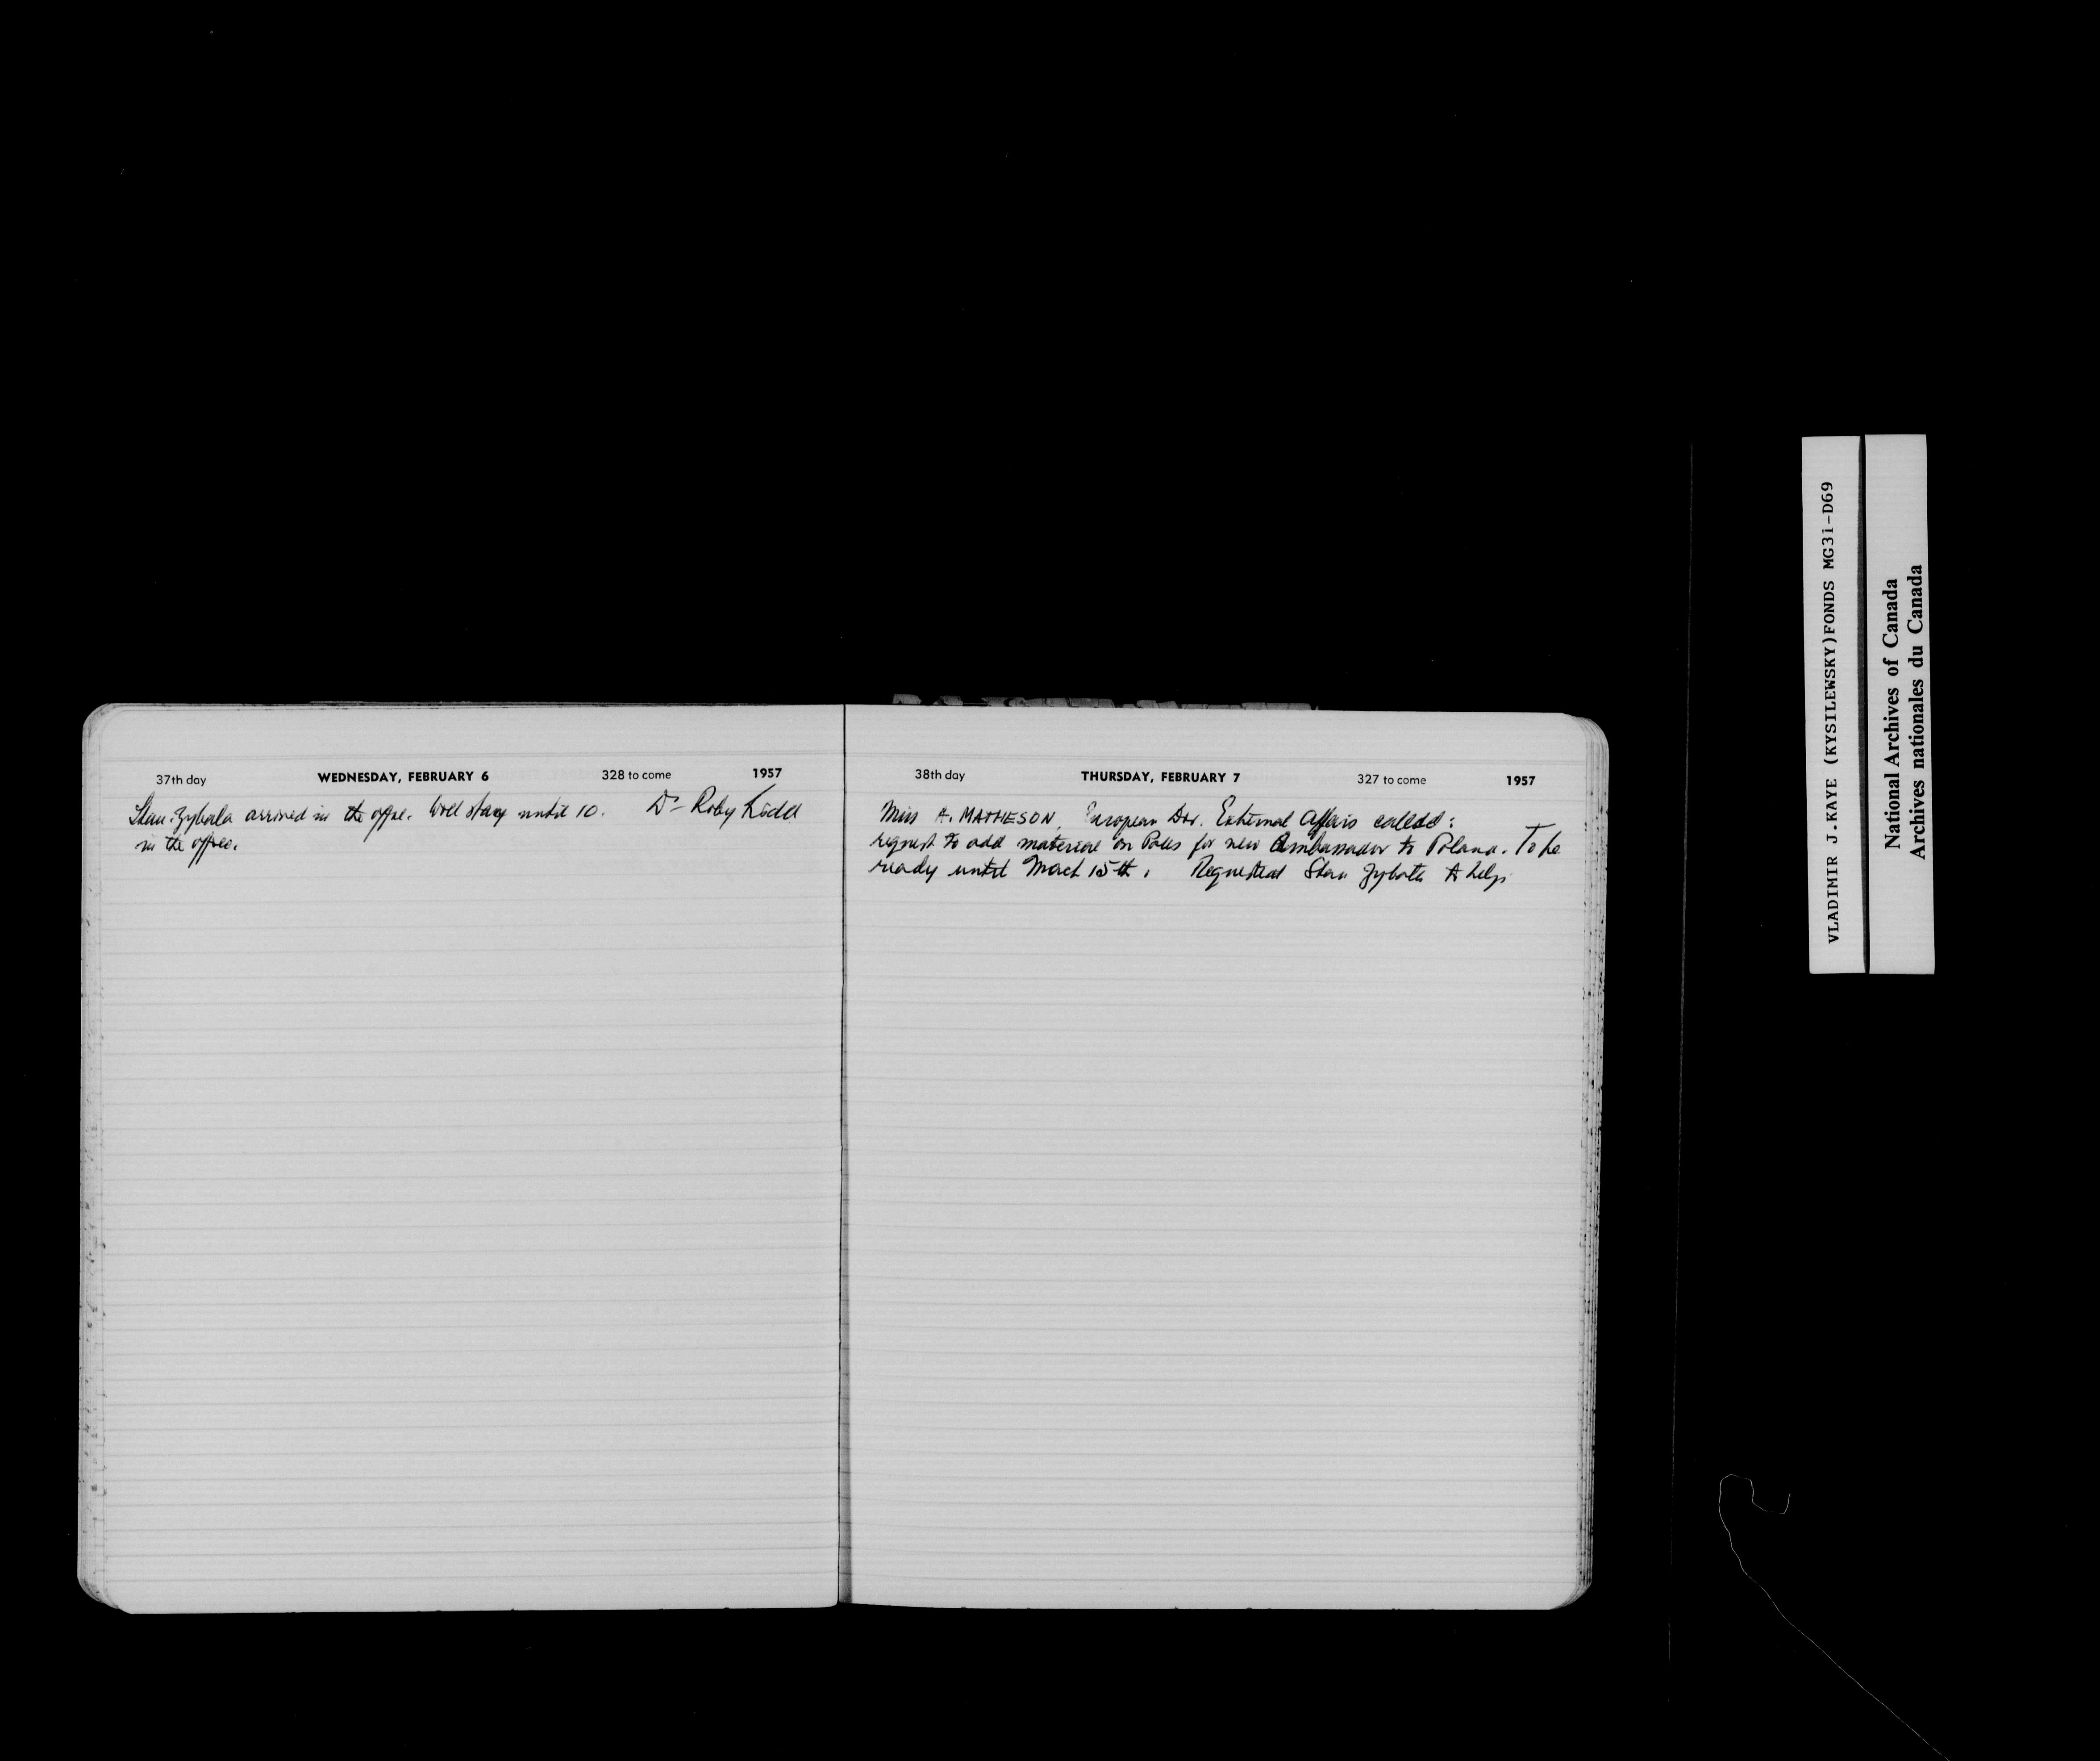 37th day WEDNESDAY, FEBRUARY 6 328 to come 1957
Stan Zybala arrived in the office. Will stay until 10. Dr Roby Kidd
in the office.
38th day THURSDAY, FEBRUARY 7 327 to come 1957
Miss A. MATHESON, European Div. External Affairs called:
request to add material on Poles for new Ambassador to Poland. To be
ready until March 15th. Requested Stan Zybala to help
VLADIMIR J.KAYE (KYSILEWSKY)FONDS MG31-D69
National Archives of Canada
Archives nationales du Canada